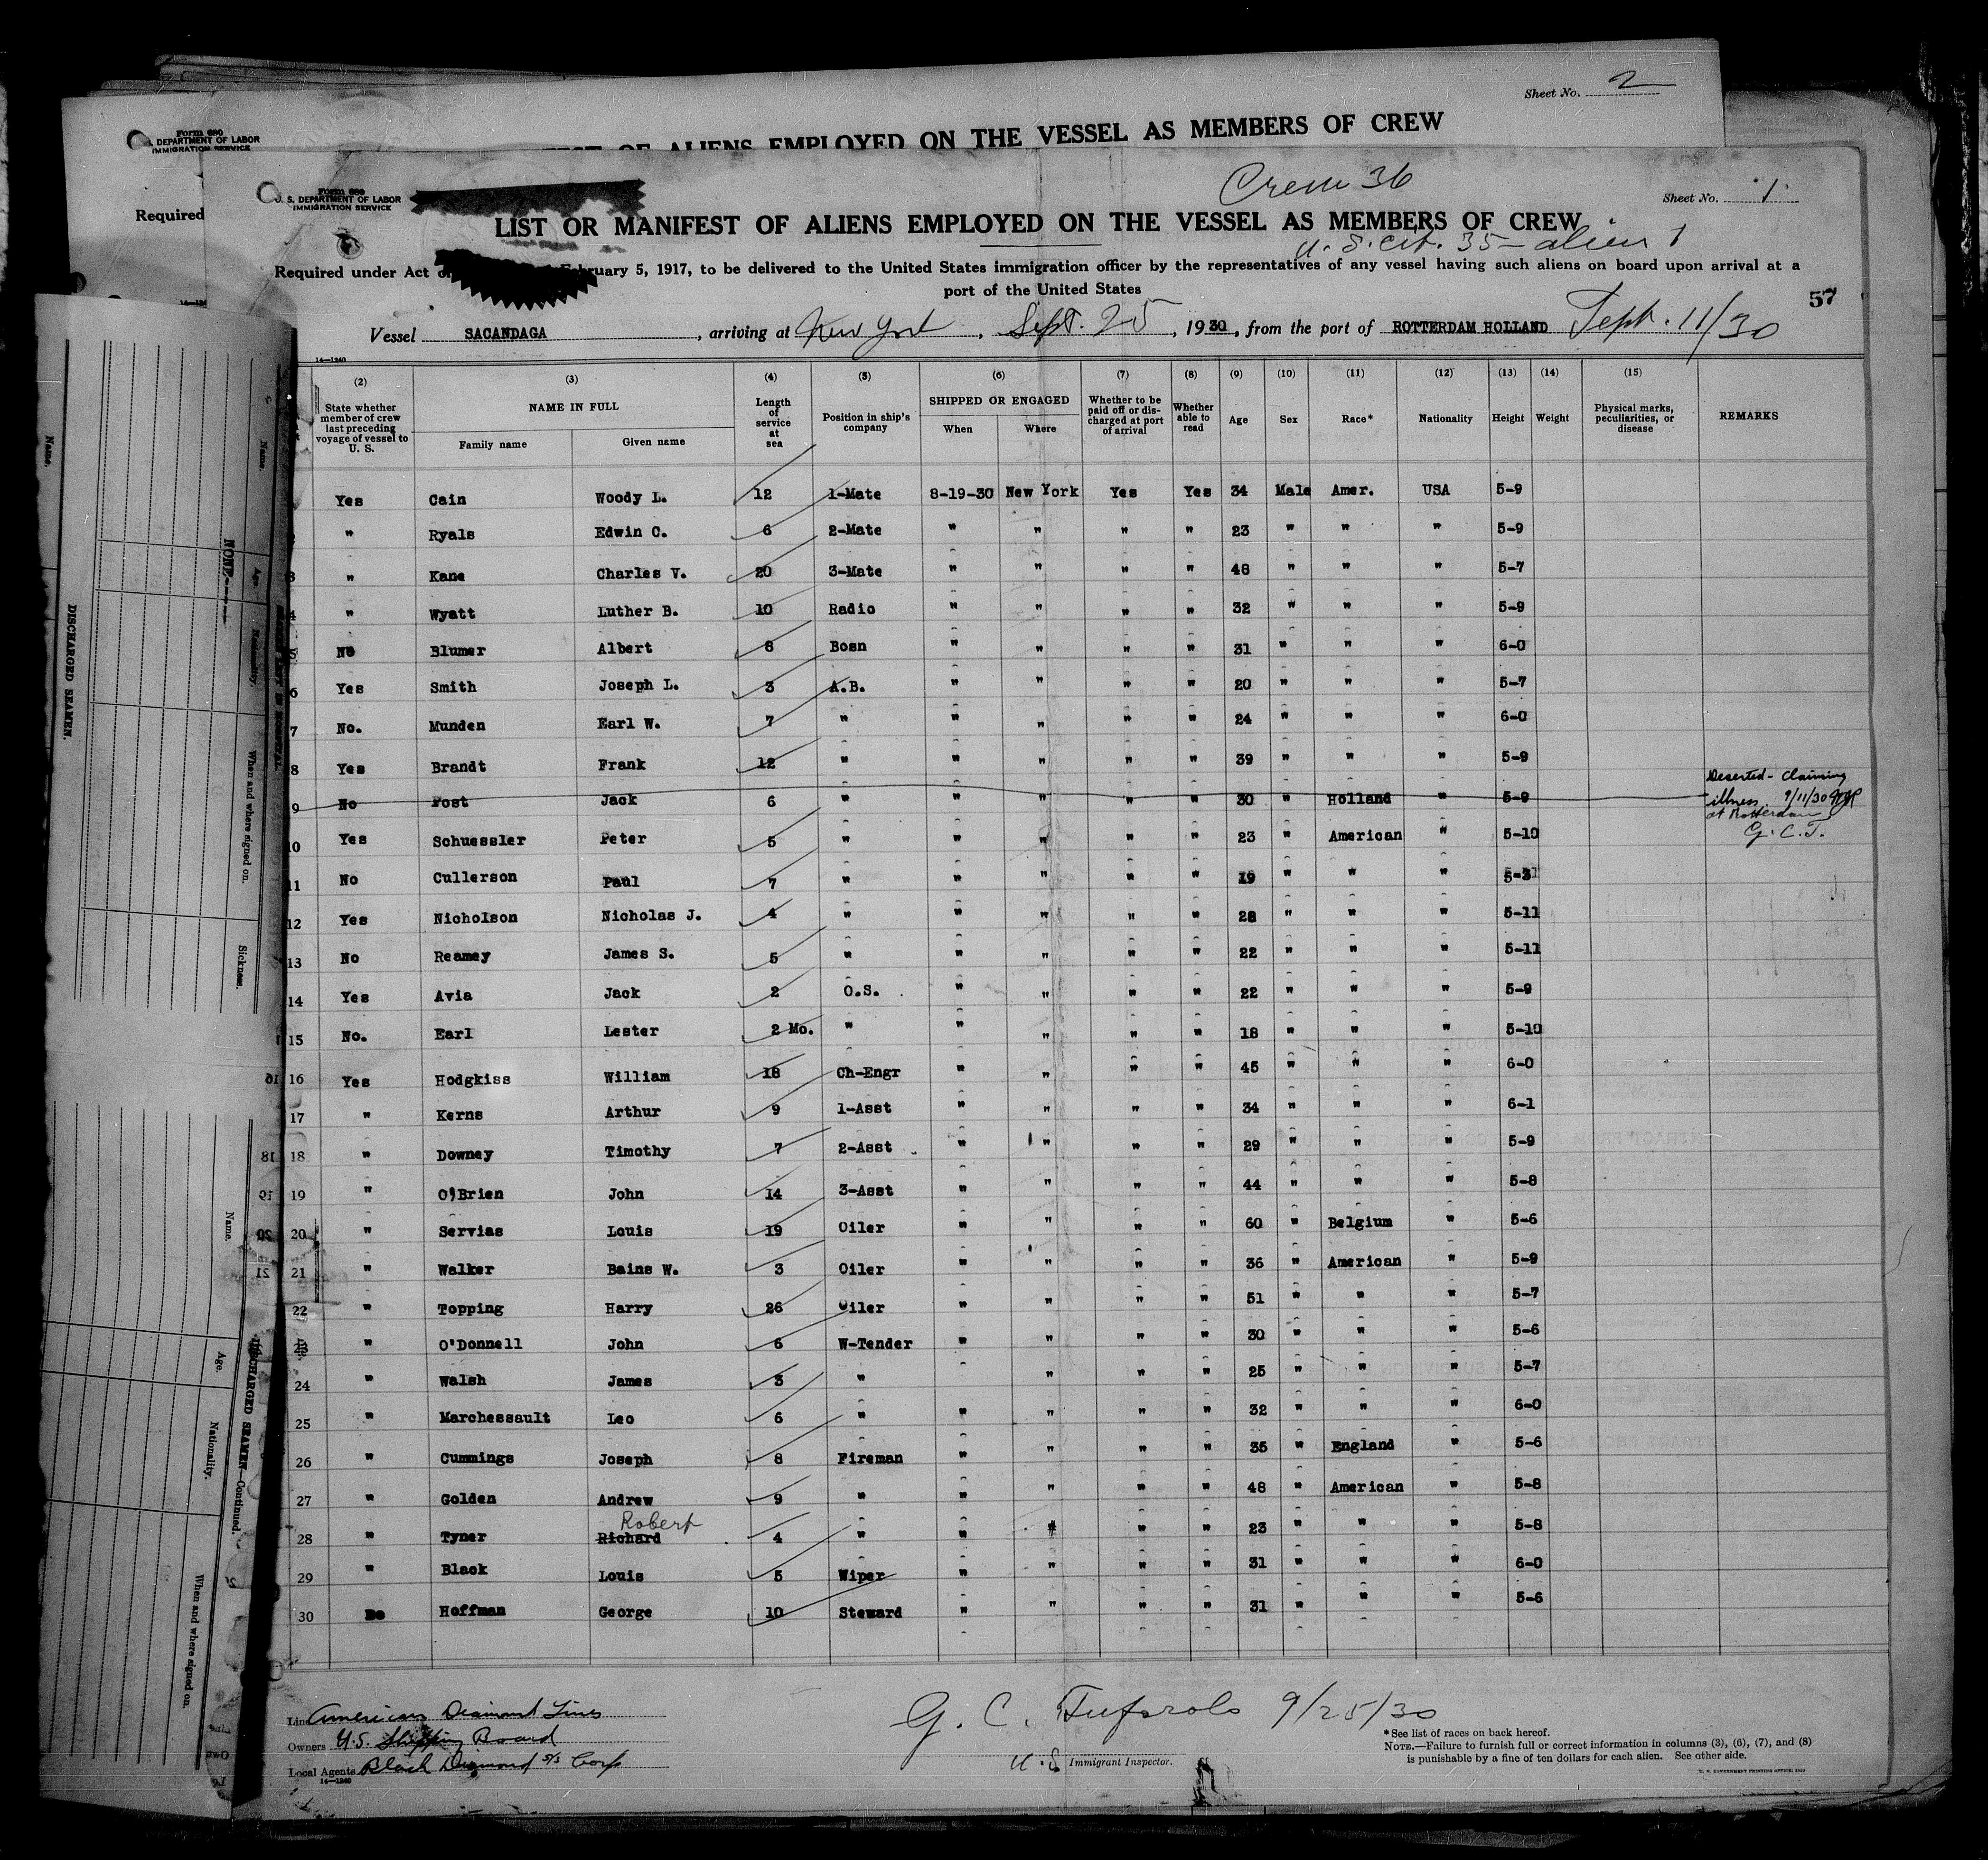 Sheet No. 2
Form 680
DEPARTMENT OF LABOR
IMMIGRATION SERVICE
OF ALIENS EMPLOYED ON THE VESSEL AS MEMBERS OF CREW
Required
Crew 36
Form 680
U. S. DEPARTMENT OF LABOR
IMMIGRATION SERVICE
Sheet No. 1
LIST OR MANIFEST OF ALIENS EMPLOYED ON THE VESSEL AS MEMBERS OF CREW
U.S. cit. 35 - alien 1
Required under Act of February 5, 1917, to be delivered to the United States immigration officer by the representatives of any vessel having such aliens on board upon arrival at a
port of the United States
57
Vessel SACANDAGA, arriving at New York, Sept. 25, 1930, from the port of ROTTERDAM HOLLAND Sept. 11/30
14-1240
(2) (3) (4) (5) (6) (7) (8) (9) (10) (11) (12) (13) (14) (15)
State whether member of crew last preceding voyage of vessel to U. S. NAME IN FULL Family name Given name Length of service at sea Position in ship's company SHIPPED OR ENGAGED When Where Whether to be paid off or discharged at port of arrival Whether able to read Age Sex Race* Nationality Height Weight Physical marks, peculiarities, or disease REMARKS
Yes Cain Woody L. 12 1-Mate 8-19-30 New York Yes Yes 34 Male Amer. USA 5-9
" Ryals Edwin C. 6 2-Mate " " " " 23 " " " 5-9
3 " Kane Charles V. 20 3-Mate " " " " 48 " " " 5-7
4 " Wyatt Luther B. 10 Radio " " " " 32 " " " 5-9
5 No Blumer Albert 8 Bosn " " " " 31 " " " 6-0
6 Yes Smith Joseph L. 3 A.B. " " " " 20 " " " 5-7
7 No. Munden Earl W. 7 " " " " " 24 " " " 6-0
8 Yes Brandt Frank 12 " " " " " 39 " " " 5-9
9 No Post Jack 6 " " " " " 30 " Holland " 5-9 Deserted - claiming illness 9/11/30 at Rotterdam G.C.T.
10 Yes Schuessler Peter 5 " " " " " 23 " American " 5-10
11 No Cullerson Paul 7 " " " " " 19 " " "
12 Yes Nicholson Nicholas J. 4 " " " " " 28 " " " 5-11
13 No Reamey James S. 5 " " " " " 22 " " " 5-11
14 Yes Avia Jack 2 O.S. " " " " 22 " " " 5-9
15 No. Earl Lester 2 Mo. " " " " " 18 " " " 5-10
16 Yes Hodgkiss William 18 Ch-Engr " " " " 45 " " " 6-0
17 " Kerns Arthur 9 1-Asst " " " " 34 " " " 6-1
18 " Downey Timothy 7 2-Asst " " " " 29 " " " 5-9
19 " O'Brien John 14 3-Asst " " " " 44 " " " 5-8
20 " Servias Louis 19 Oiler " " " " 60 " Belgium " 5-6
21 " Walker Bains W. 3 Oiler " " " " 36 " American " 5-9
22 " Topping Harry 26 Oiler " " " " 51 " " " 5-7
23 " O'Donnell John 6 W-Tender " " " " 30 " " " 5-6
24 " Walsh James 3 " " " " 25 " " " 5-7
25 " Marchessault Leo 6 " " " " " 32 " " " 6-0
26 " Cummings Joseph 8 Fireman " " " " 35 " England " 5-6
27 " Golden Andrew 9 " " " " " 48 " American " 5-8
28 " Tyner Richard Robert 4 " " " " " 23 " " " 5-8
29 " Black Louis 5 Wiper " " " " 31 " " " 6-0
30 No Hoffman George 10 Steward " " " " 31 " " " 5-6
Line American Diamond Lines
Owners U.S. Shipping Board
Local Agents Black Diamond S/S Corp
14-1240
G. C. 9/25/30
U.S. Immigrant Inspector.
*See list of races on back hereof.
NOTE.—Failure to furnish full or correct information in columns (3), (6), (7), and (8)
is punishable by a fine of ten dollars for each alien. See other side.
U. S. GOVERNMENT PRINTING OFFICE
DISCHARGED SEAMEN.
Name.
NONE
Age.
Nationality.
When and where signed on.
Sickness.
DISCHARGED SEAMEN—Continued.
Name.
Age.
Nationality.
When and where signed on.